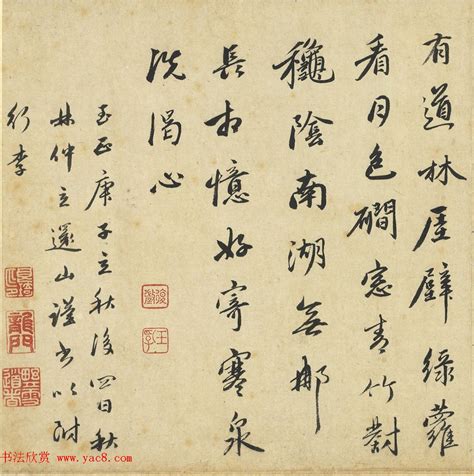 有道林屋壁綠蘿
看月色磵窓青竹對
龝陰南湖無那
長相憶好寄寒泉
洗渴心
至正庚子立秋後四日秋
林仲立還山謹書以附
行李
龍門
书法欣赏 www.yac8.com